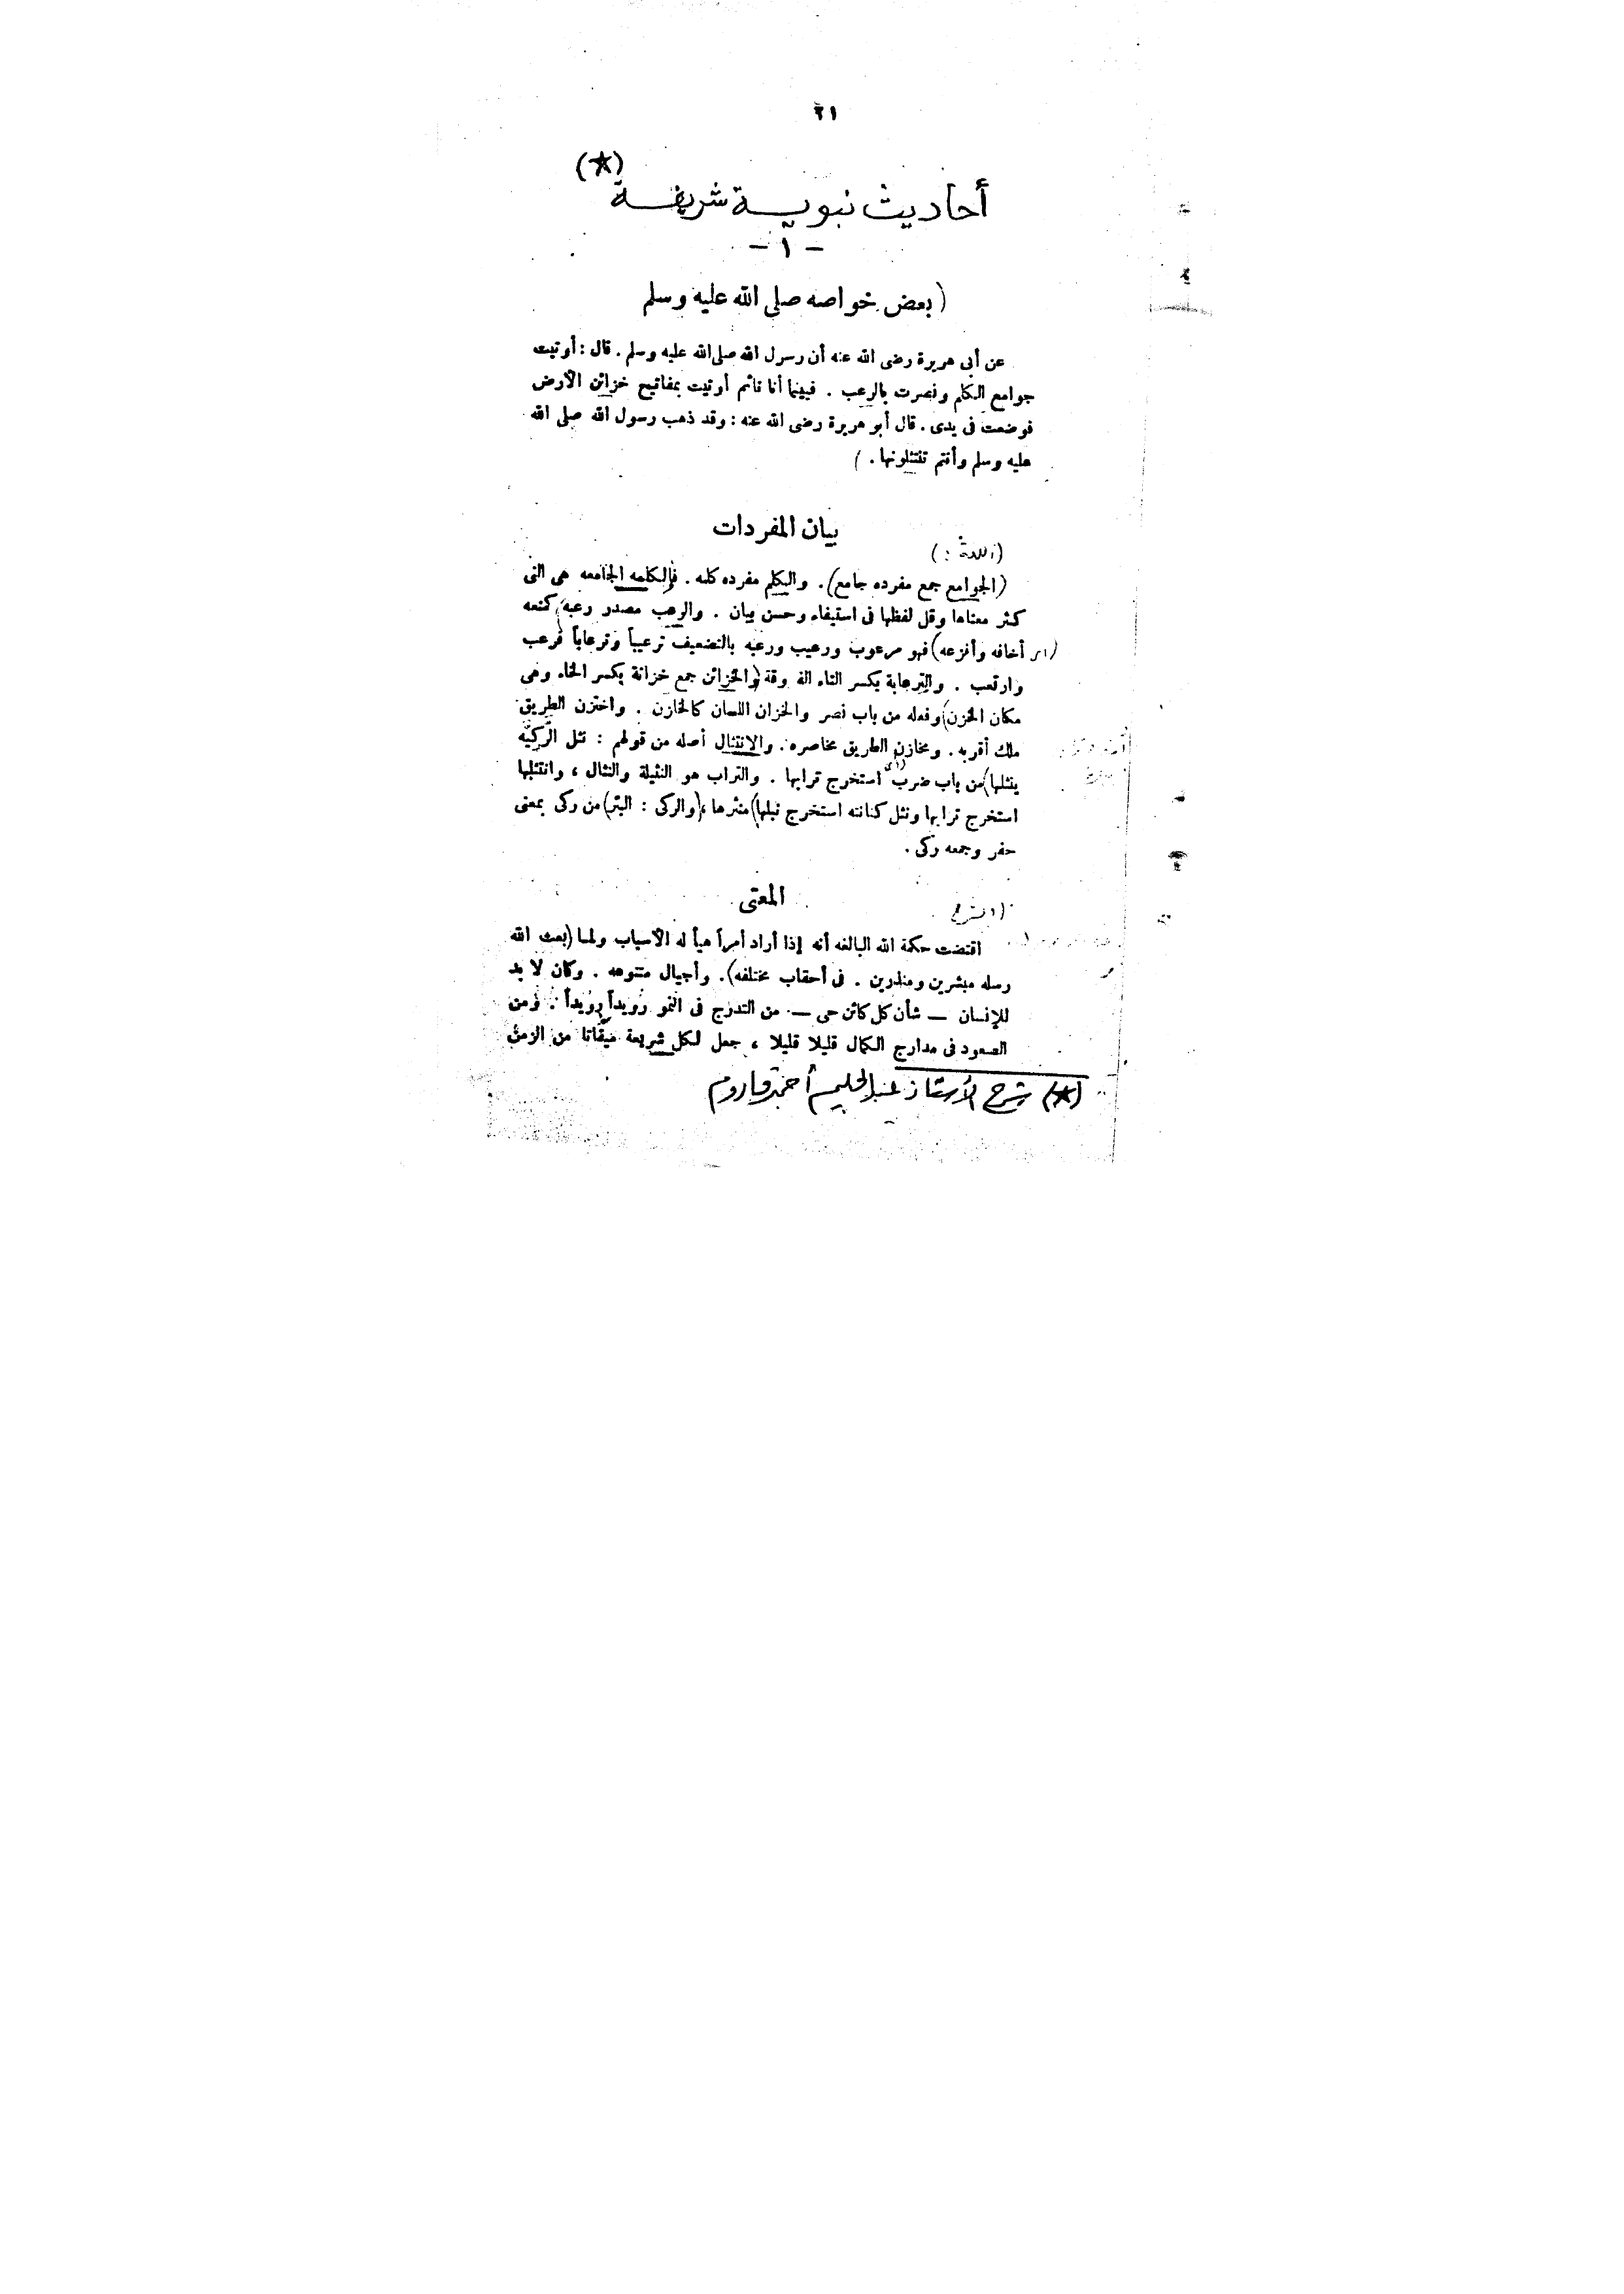 ٢١
(*)
أحاديث نبوية شريفة
- ١ -
( بعض خواصه صلى الله عليه وسلم
عن أبى هريرة رضى الله عنه أن رسول الله صلى الله عليه وسلم . قال : أوتيت
جوامع الكلم ونصرت بالرعب . فبينما أنا نائم أوتيت بمفاتيح خزائن الأرض
فوضعت فى يدى . قال أبو هريرة رضى الله عنه : وقد ذهب رسول الله صلى الله
عليه وسلم وأنتم تنتثلونها . )
بيان المفردات
(اللغة : )
(الجوامع جمع مفرده جامع) . والكلم مفرده كلمه . فالكلمه الجامعه هى التى
كثر معناها وقل لفظها فى استيفاء وحسن بيان . والرعب مصدر رعبه كنعه
(أى أخافه وأفزعه) فهو مرعوب ورعيب ورعبه بالتضعيف ترعيباً وترعاباً فرعب
وارتعب . والترعابة بكسر التاء الفروقة (والخزائن جمع خزانة بكسر الخاء وهى
مكان الخزن) وفعله من باب نصر والخزان اللسان كالخازن . واختزن الطريق
ملك أقربه . ومخازن الطريق مخاصره . والانتثال أصله من قولهم : نثل الركيّه
ينثلها) من باب ضرب (أى استخرج ترابها . والتراب هو النثيلة والنثال ، وانتثلها
استخرج ترابها ونثل كنانته استخرج نبلها) منثرها ، (والركى : البئر) من ركى بمعنى
حفر وجمعه ركى .
المعنى
(الشرح
اقتضت حكمة الله البالغه أنه إذا أراد أمراً هيأ له الأسباب ولما (بعث الله
رسله مبشرين ومنذرين . فى أحقاب مختلفه) . وأجيال متنوعه . وكان لا بد
للإنسان — شأن كل كائن حى — من التدرج فى النمو رويداً رويداً . ومن
الصعود فى مدارج الكمال قليلا قليلا ، جعل لكل شريعة ميقاتا من الزمن
(*) شرح الأستاذ عبدالحليم أحمد قاروم